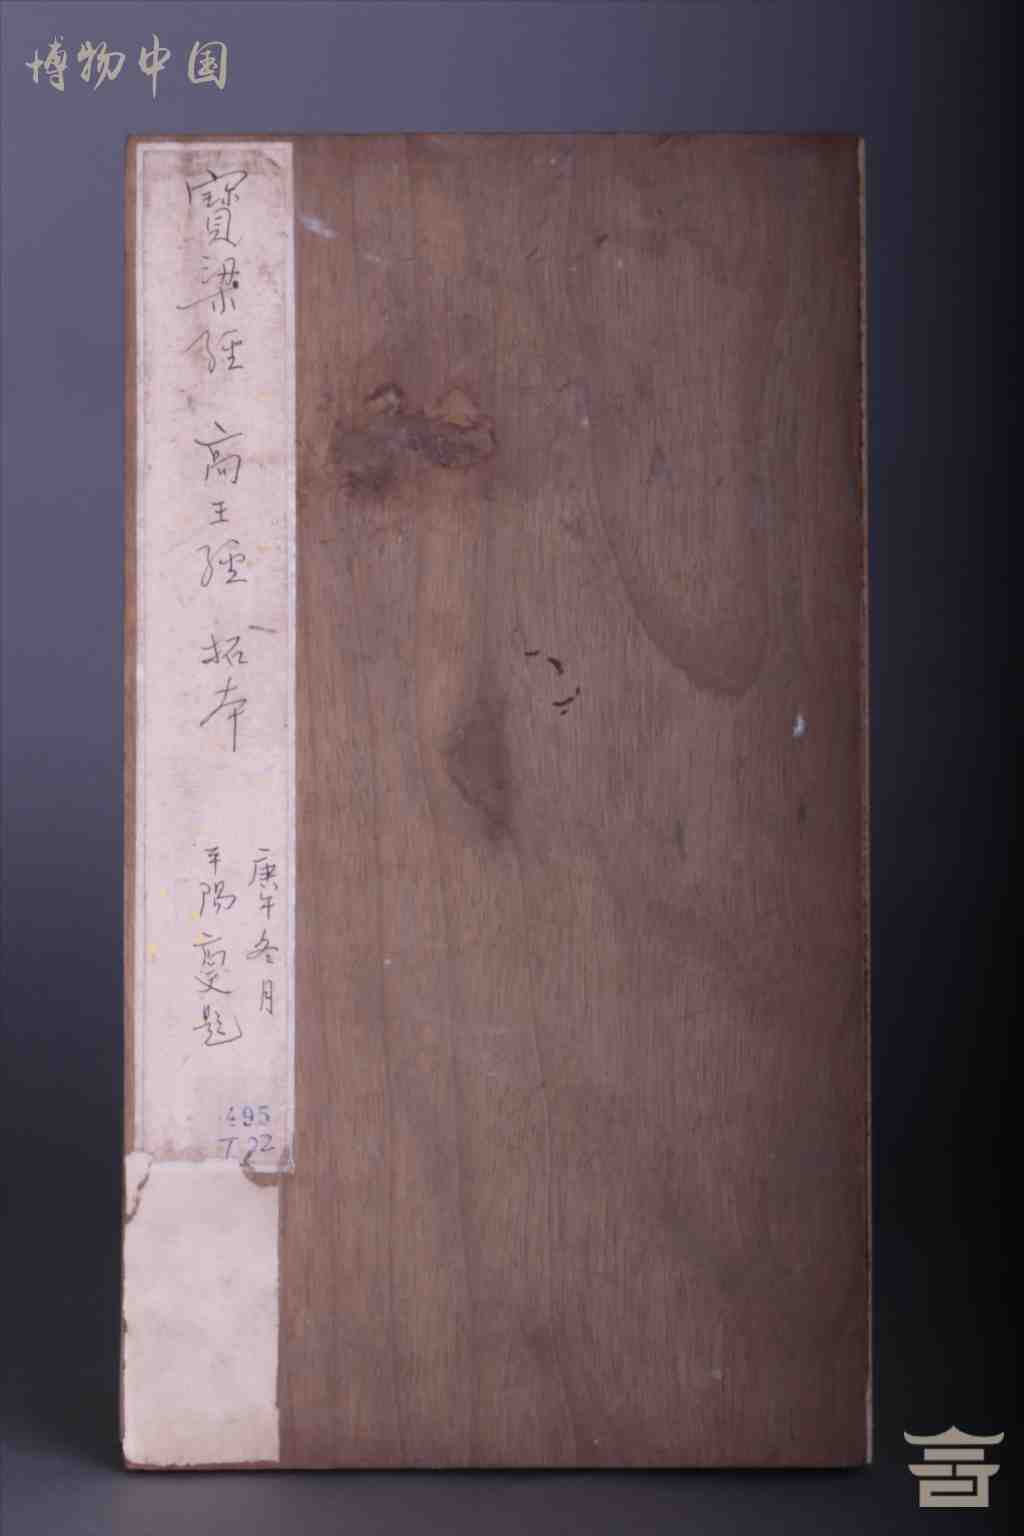 博物中国
寶梁經 高王經 拓本
庚午冬月
平陽高燮題
495
T22